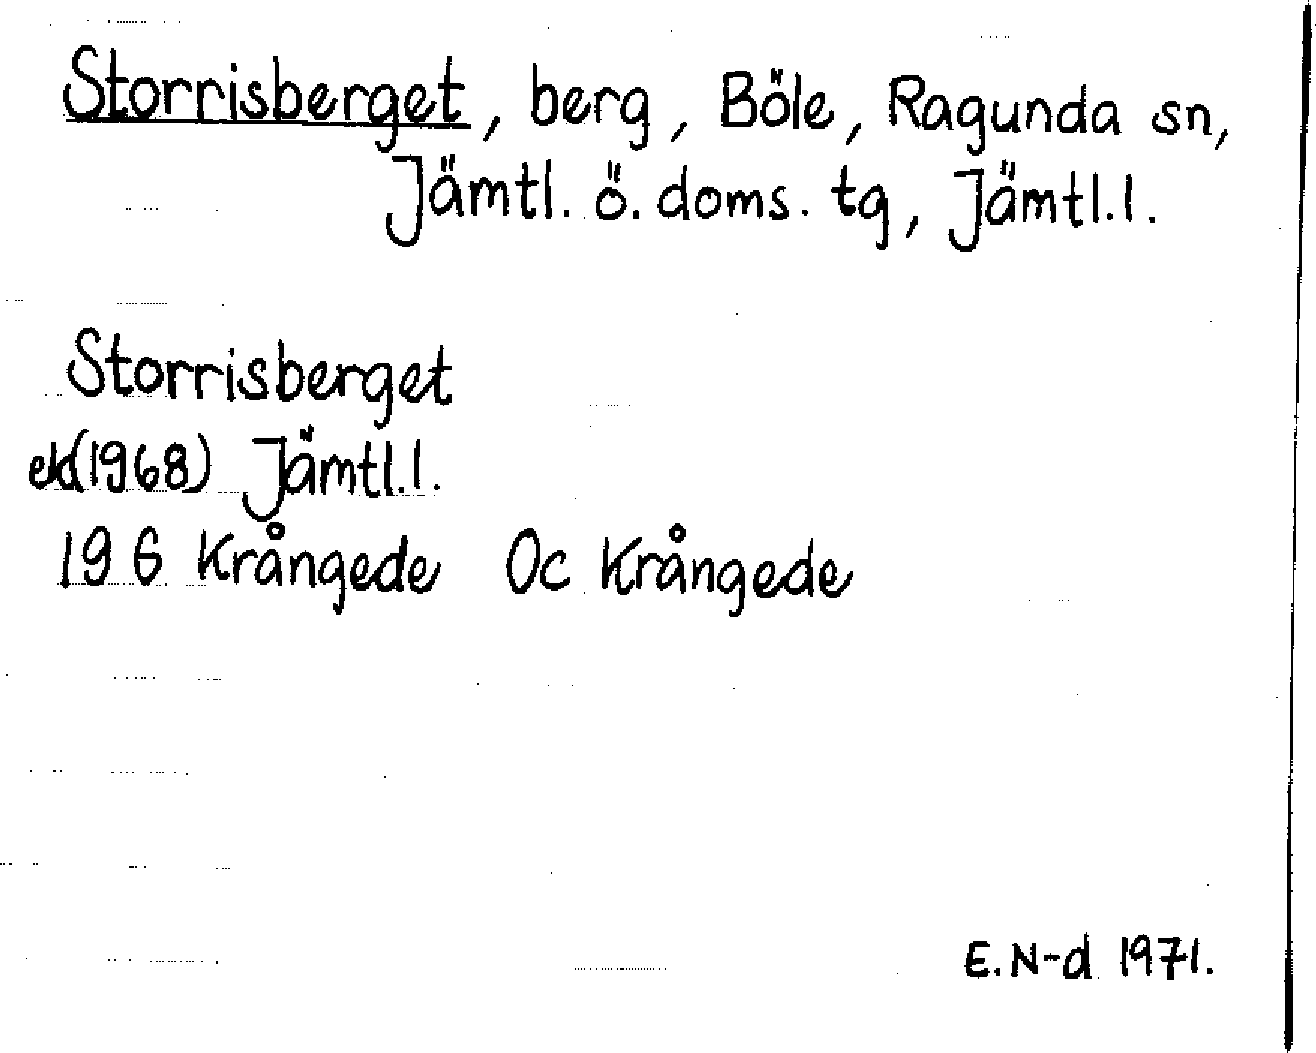 Storrisberget, berg, Böle, Ragunda sn,
Jämtl. ö. doms. tg, Jämtl.l.
Storrisberget
ek(1968) Jämtl.l.
19 G Krångede Oc Krångede
E.N-d 1971.